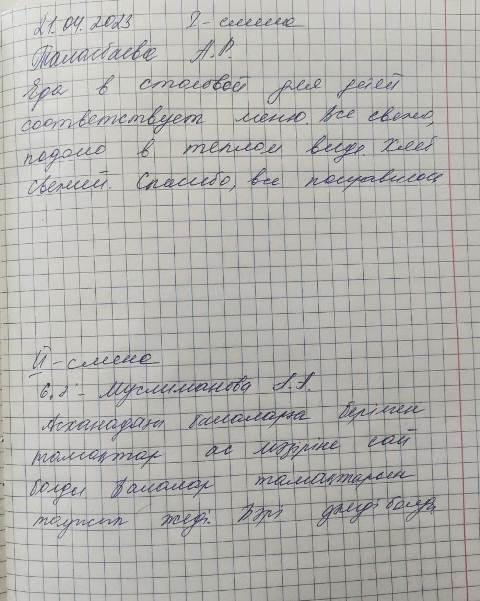 21.04.2023 I-смена
Таласбаева А.Р.
Еда в столовой для детей
соответствует меню. Все свежо,
подано в теплом виде. Хлеб
свежий. Спасибо, все понравилось
II-смена
- Муслиманова А.А.
Асханадағы балаларға берілген
тамақтар ас мәзіріне сай
болды Балалар тамақтарын
тауысып жеді. Бәрі дәмді болды